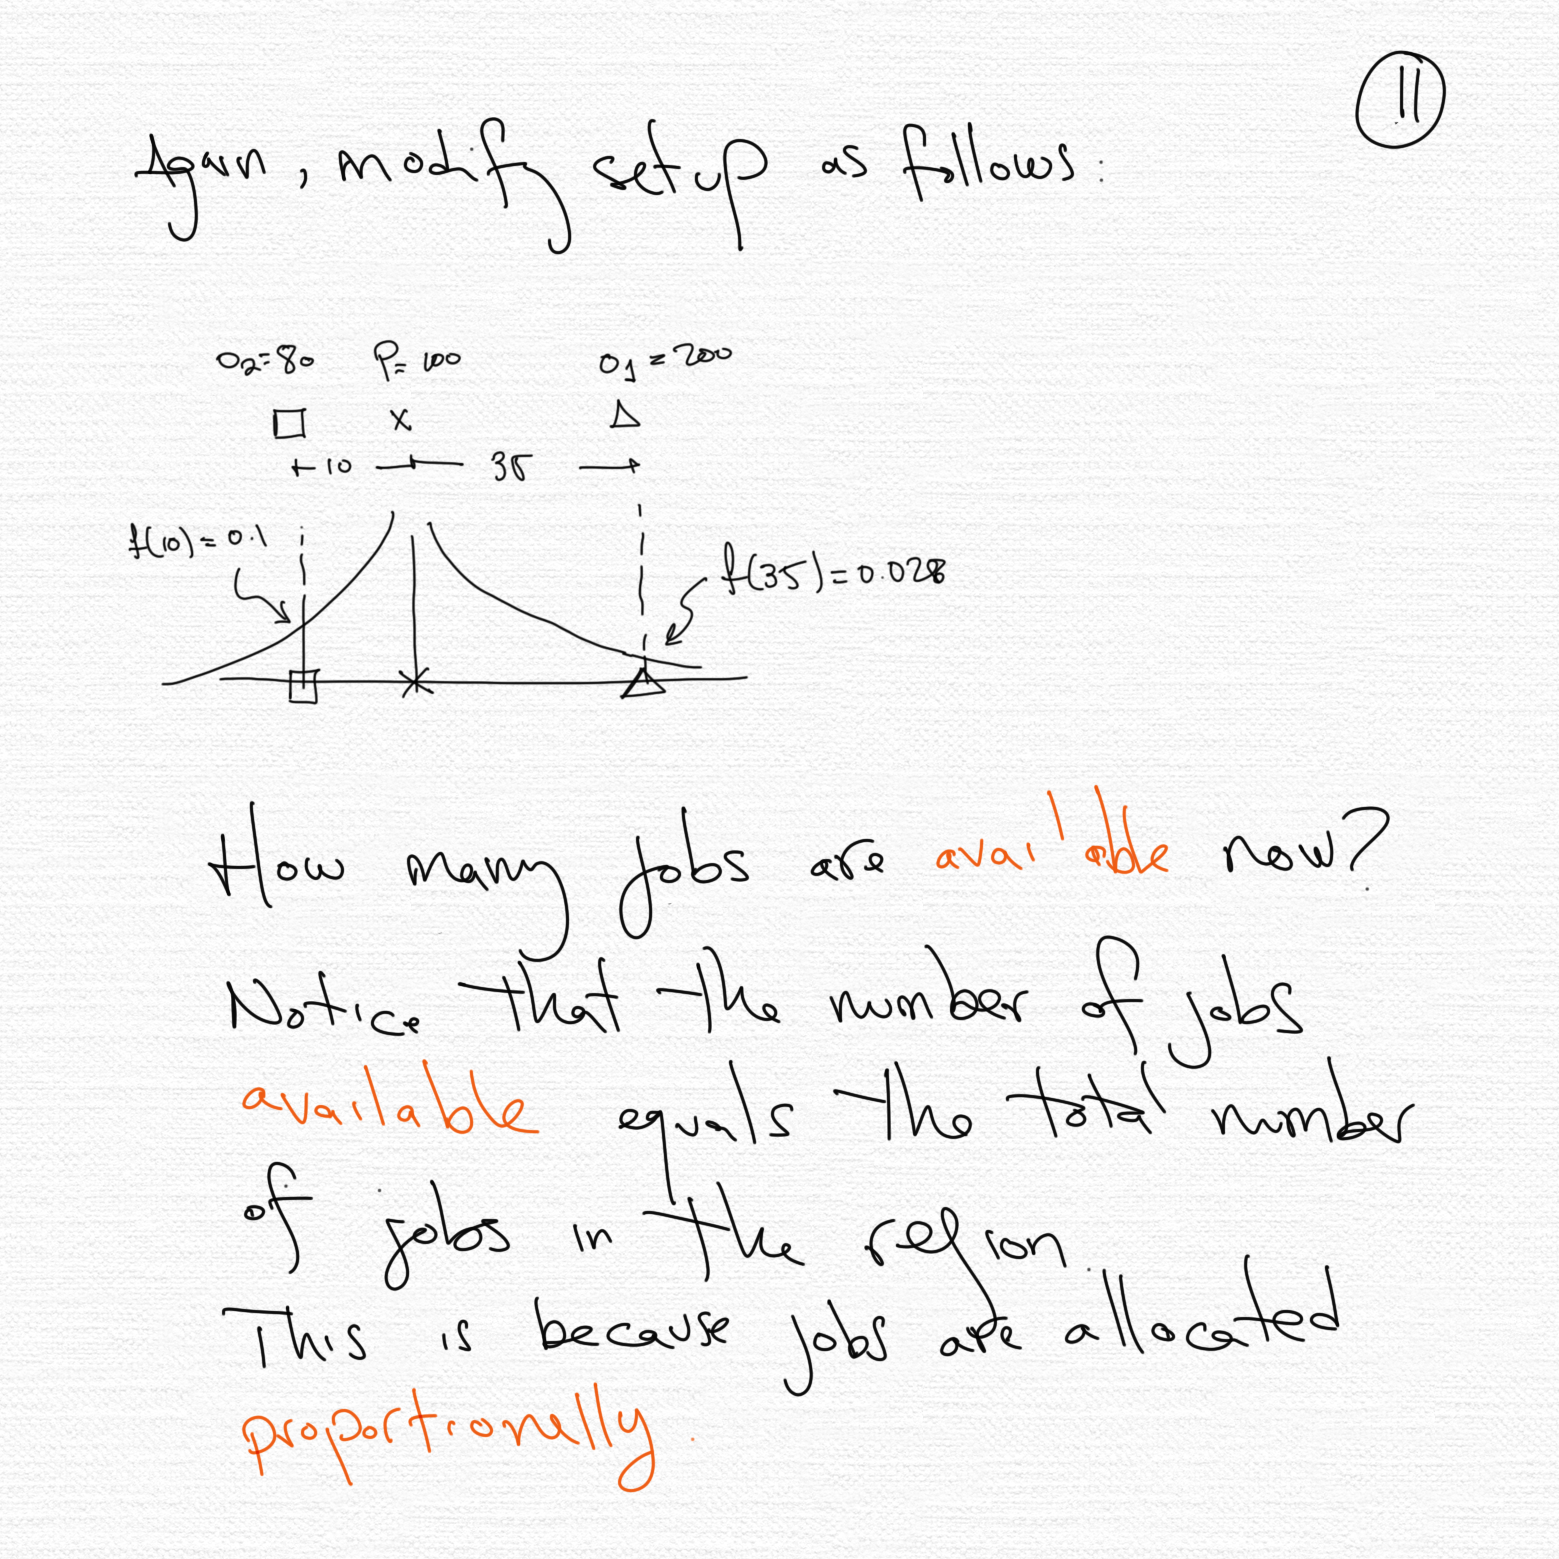 11
Again, modify setup as follows:
O2=80 P=100 O1=200
10 35
f(10)=0.1
f(35)=0.028
How many jobs are available now?
Notice that the number of jobs
available equals the total number
of jobs in the region.
This is because jobs are allocated
proportionally.